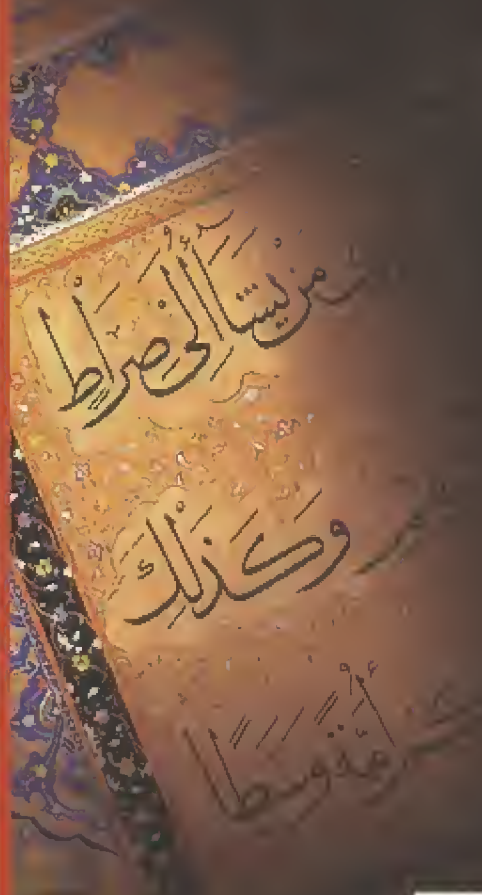 مَنْ يَشَآءُ إِلَىٰ صِرَاطٍ
وَكَذَٰلِكَ
أُمَّةً وَسَطًا